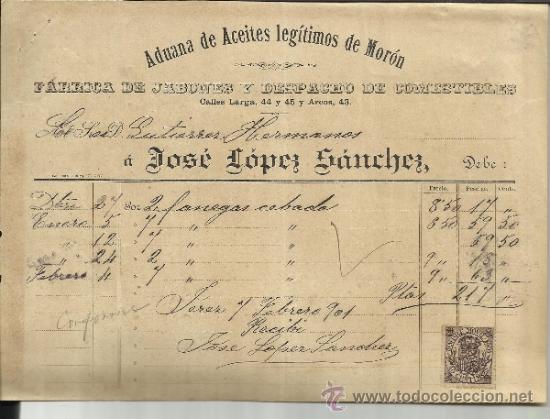 Aduana de Aceites legítimos de Morón
FÁBRICA DE JABONES Y DESPACHO DE COMESTIBLES
Calles Larga, 44 y 45 y Arcos, 43.
Gutierrez Hermanos
á José López Sánchez, Debe:
Precio. Pesetas. Cents.
27 Por 2 fanegas cebada 8 50 17 "
Enero 5 " 7 " " 8 50 59 50
" 12 " 7 " " 59 50
" 24 " 2 " " 9 " 18 "
Febrero 4 " 7 " " 9 " 63 "
Ptas 217 "
Conforme
Jerez 7 Febrero 901
Recibí
José López Sánchez
todocoleccion.net